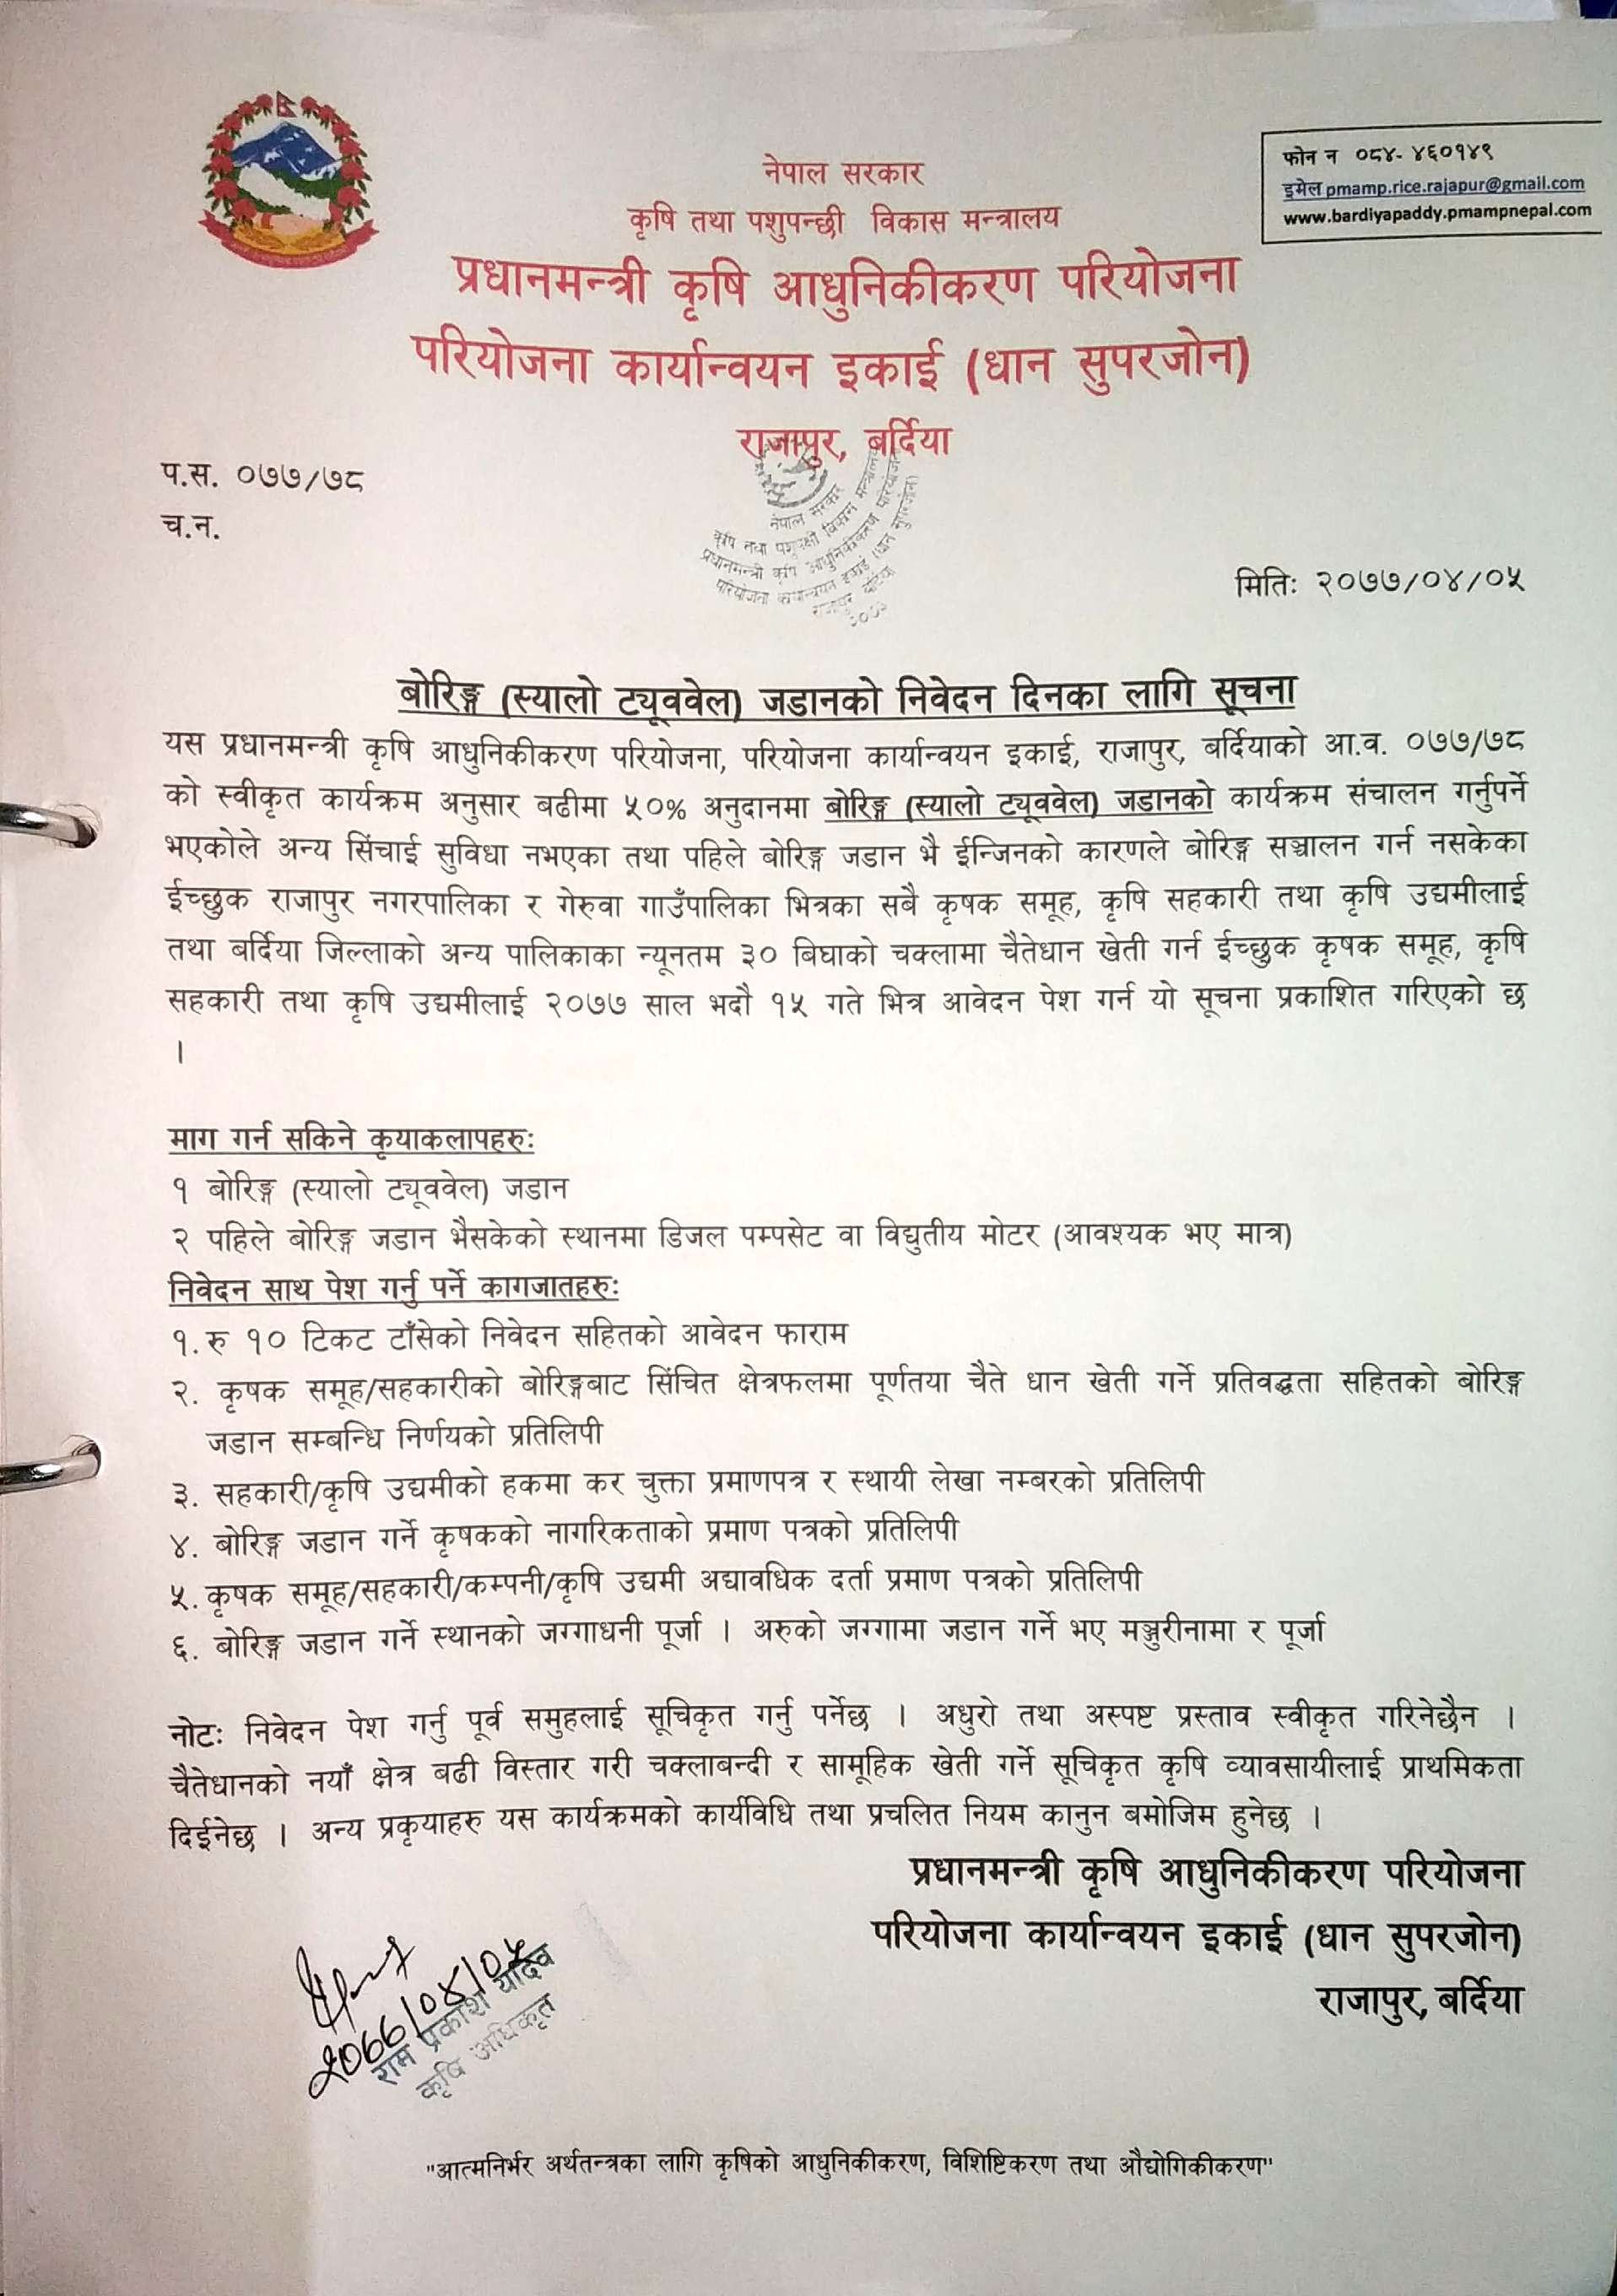 फोन न ०८४- ४६०१४९
इमेल pmamp.rice.rajapur@gmail.com
www.bardiyapaddy.pmampnepal.com
नेपाल सरकार
कृषि तथा पशुपन्छी विकास मन्त्रालय
प्रधानमन्त्री कृषि आधुनिकीकरण परियोजना
परियोजना कार्यान्वयन इकाई (धान सुपरजोन)
राजापुर, बर्दिया
प.स. ०७७/७८
च.न.
नेपाल सरकार
कृषि तथा पशुपन्छी विकास मन्त्रालय
प्रधानमन्त्री कृषि आधुनिकीकरण परियोजना
परियोजना कार्यान्वयन इकाई (धान सुपरजोन)
राजापुर बर्दिया
मितिः २०७७/०४/०५
बोरिङ्ग (स्यालो ट्यूववेल) जडानको निवेदन दिनका लागि सूचना
यस प्रधानमन्त्री कृषि आधुनिकीकरण परियोजना, परियोजना कार्यान्वयन इकाई, राजापुर, बर्दियाको आ.व. ०७७/७८
को स्वीकृत कार्यक्रम अनुसार बढीमा ५०% अनुदानमा बोरिङ्ग (स्यालो ट्यूववेल) जडानको कार्यक्रम संचालन गर्नुपर्ने
भएकोले अन्य सिंचाई सुविधा नभएका तथा पहिले बोरिङ्ग जडान भै ईन्जिनको कारणले बोरिङ्ग सञ्चालन गर्न नसकेका
ईच्छुक राजापुर नगरपालिका र गेरुवा गाउँपालिका भित्रका सबै कृषक समूह, कृषि सहकारी तथा कृषि उद्यमीलाई
तथा बर्दिया जिल्लाको अन्य पालिकाका न्यूनतम ३० बिघाको चक्लामा चैतेधान खेती गर्न ईच्छुक कृषक समूह, कृषि
सहकारी तथा कृषि उद्यमीलाई २०७७ साल भदौ १५ गते भित्र आवेदन पेश गर्न यो सूचना प्रकाशित गरिएको छ
।
माग गर्न सकिने कृयाकलापहरुः
१ बोरिङ्ग (स्यालो ट्यूववेल) जडान
२ पहिले बोरिङ्ग जडान भैसकेको स्थानमा डिजल पम्पसेट वा विद्युतीय मोटर (आवश्यक भए मात्र)
निवेदन साथ पेश गर्नु पर्ने कागजातहरुः
१. रु १० टिकट टाँसेको निवेदन सहितको आवेदन फाराम
२. कृषक समूह/सहकारीको बोरिङ्गबाट सिंचित क्षेत्रफलमा पूर्णतया चैते धान खेती गर्ने प्रतिवद्धता सहितको बोरिङ्ग
जडान सम्बन्धि निर्णयको प्रतिलिपी
३. सहकारी/कृषि उद्यमीको हकमा कर चुक्ता प्रमाणपत्र र स्थायी लेखा नम्बरको प्रतिलिपी
४. बोरिङ्ग जडान गर्ने कृषकको नागरिकताको प्रमाण पत्रको प्रतिलिपी
५. कृषक समूह/सहकारी/कम्पनी/कृषि उद्यमी अद्यावधिक दर्ता प्रमाण पत्रको प्रतिलिपी
६. बोरिङ्ग जडान गर्ने स्थानको जग्गाधनी पूर्जा । अरुको जग्गामा जडान गर्ने भए मञ्जुरीनामा र पूर्जा
नोटः निवेदन पेश गर्नु पूर्व समुहलाई सूचिकृत गर्नु पर्नेछ । अधुरो तथा अस्पष्ट प्रस्ताव स्वीकृत गरिनेछैन ।
चैतेधानको नयाँ क्षेत्र बढी विस्तार गरी चक्लाबन्दी र सामूहिक खेती गर्ने सूचिकृत कृषि व्यावसायीलाई प्राथमिकता
दिईनेछ । अन्य प्रकृयाहरु यस कार्यक्रमको कार्यविधि तथा प्रचलित नियम कानुन बमोजिम हुनेछ ।
प्रधानमन्त्री कृषि आधुनिकीकरण परियोजना
परियोजना कार्यान्वयन इकाई (धान सुपरजोन)
राजापुर, बर्दिया
२०७७/०४/०५
राम प्रकाश यादव
कृषि अधिकृत
"आत्मनिर्भर अर्थतन्त्रका लागि कृषिको आधुनिकीकरण, विशिष्टिकरण तथा औद्योगिकीकरण"